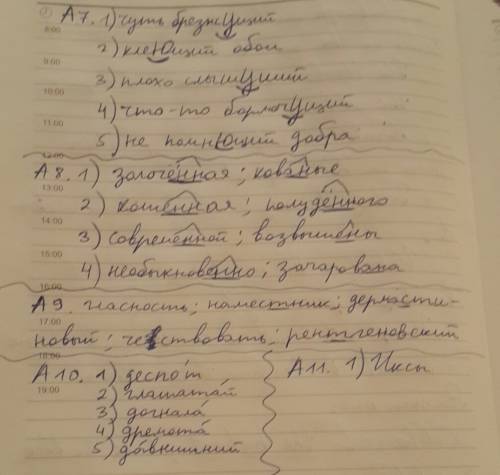 А7. 1) чуть брезжУщий
8:00
2) клеЮщий обои
9:00
3) плохо слышУщий
10:00
4) что-то бормочУщий
11:00
5) не помнЮщий добра
12:00
А8. 1) золочённая; кованые
13:00
2) кошенная; полудённого
14:00
3) современной; возвышены
15:00
4) необыкновенно; зачарована
16:00
А9. гласность; наместник; дермасти-
17:00
новый; чествовать; рентгеновский
18:00
А10. 1) деспо́т
19:00
2) глашата́й
3) догнала́
4) дремота́
5) да́внишний
А11. 1) Иксы